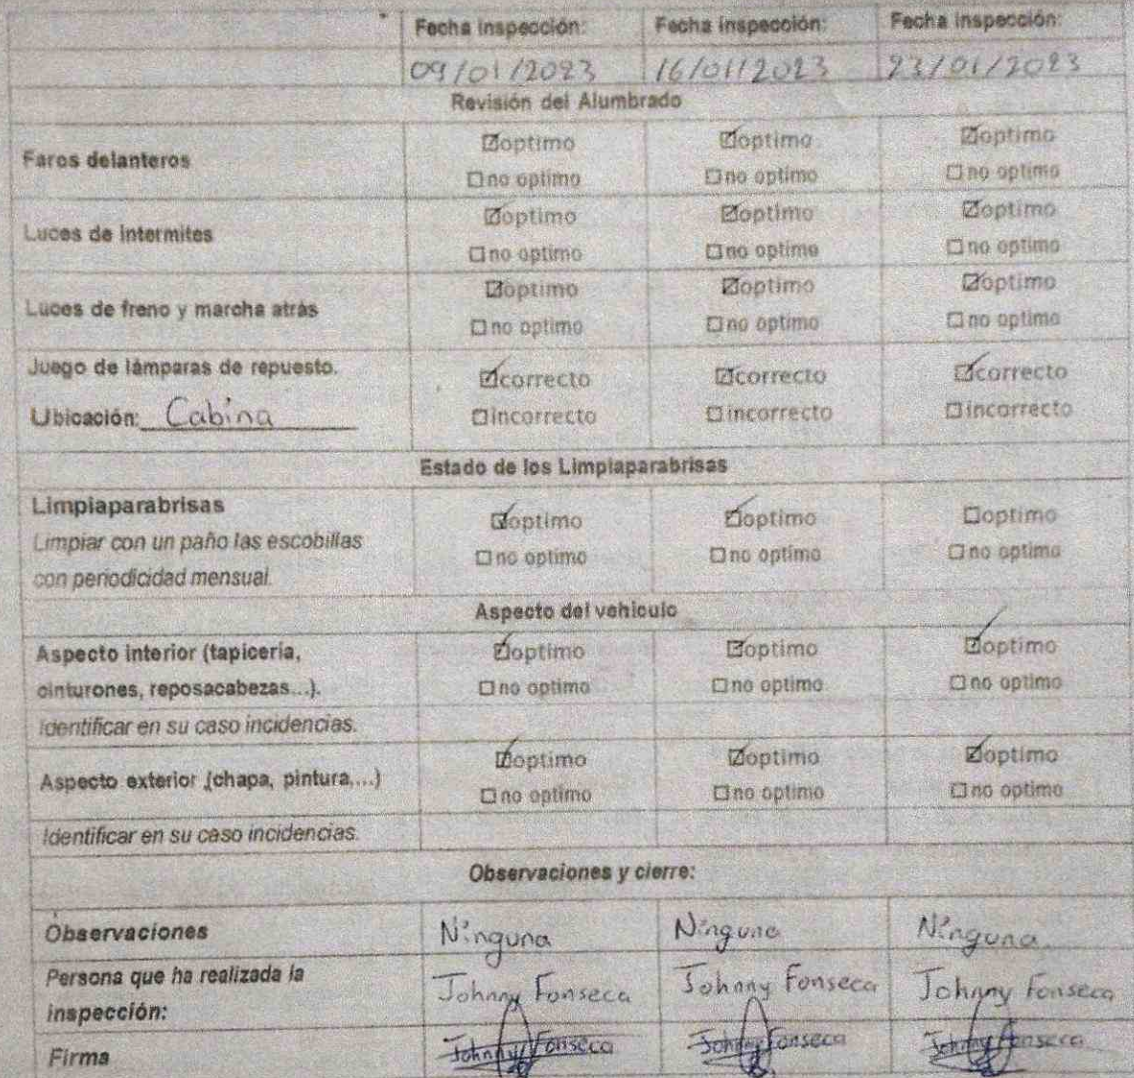 Fecha inspección: Fecha inspección: Fecha inspección:
09/01/2023 16/01/2023 23/01/2023
Revisión del Alumbrado
Faros delanteros
☑optimo ☑optimo ☑optimo
☐no optimo ☐no optimo ☐no optimo
Luces de intermites
☑optimo ☑optimo ☑optimo
☐no optimo ☐no optimo ☐no optimo
Luces de freno y marcha atrás
☑optimo ☑optimo ☑optimo
☐no optimo ☐no optimo ☐no optimo
Juego de lámparas de repuesto.
Ubicación: Cabina
☑correcto ☑correcto ☑correcto
☐incorrecto ☐incorrecto ☐incorrecto
Estado de los Limpiaparabrisas
Limpiaparabrisas
Limpiar con un paño las escobillas
con periodicidad mensual.
☑optimo ☑optimo ☐optimo
☐no optimo ☐no optimo ☐no optimo
Aspecto del vehiculo
Aspecto interior (tapicería,
cinturones, reposacabezas...).
☑optimo ☑optimo ☑optimo
☐no optimo ☐no optimo ☐no optimo
Identificar en su caso incidencias.
Aspecto exterior (chapa, pintura,...)
☑optimo ☑optimo ☑optimo
☐no optimo ☐no optimo ☐no optimo
Identificar en su caso incidencias.
Observaciones y cierre:
Observaciones Ninguna Ninguna Ninguna
Persona que ha realizada la
inspección:
Johnny Fonseca Johnny Fonseca Johnny Fonseca
Firma Johnny Fonseca Johnny Fonseca Johnny Fonseca